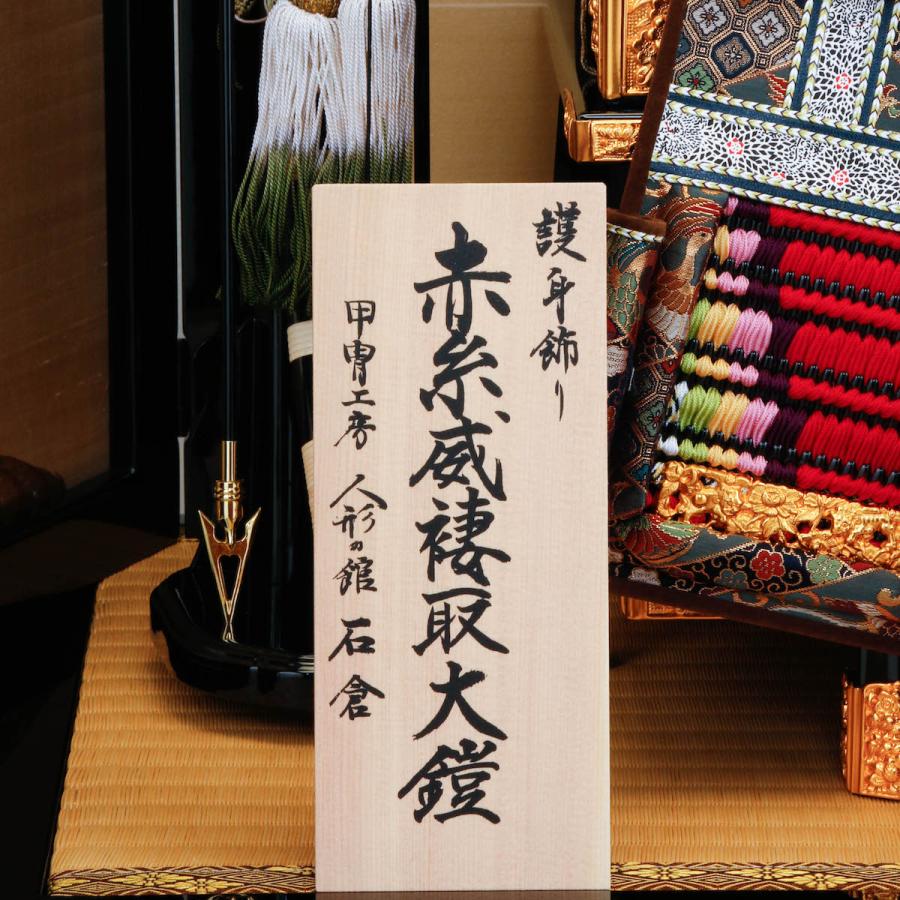 護身飾り
赤糸威褄取大鎧
甲冑工房 人形の館 石倉